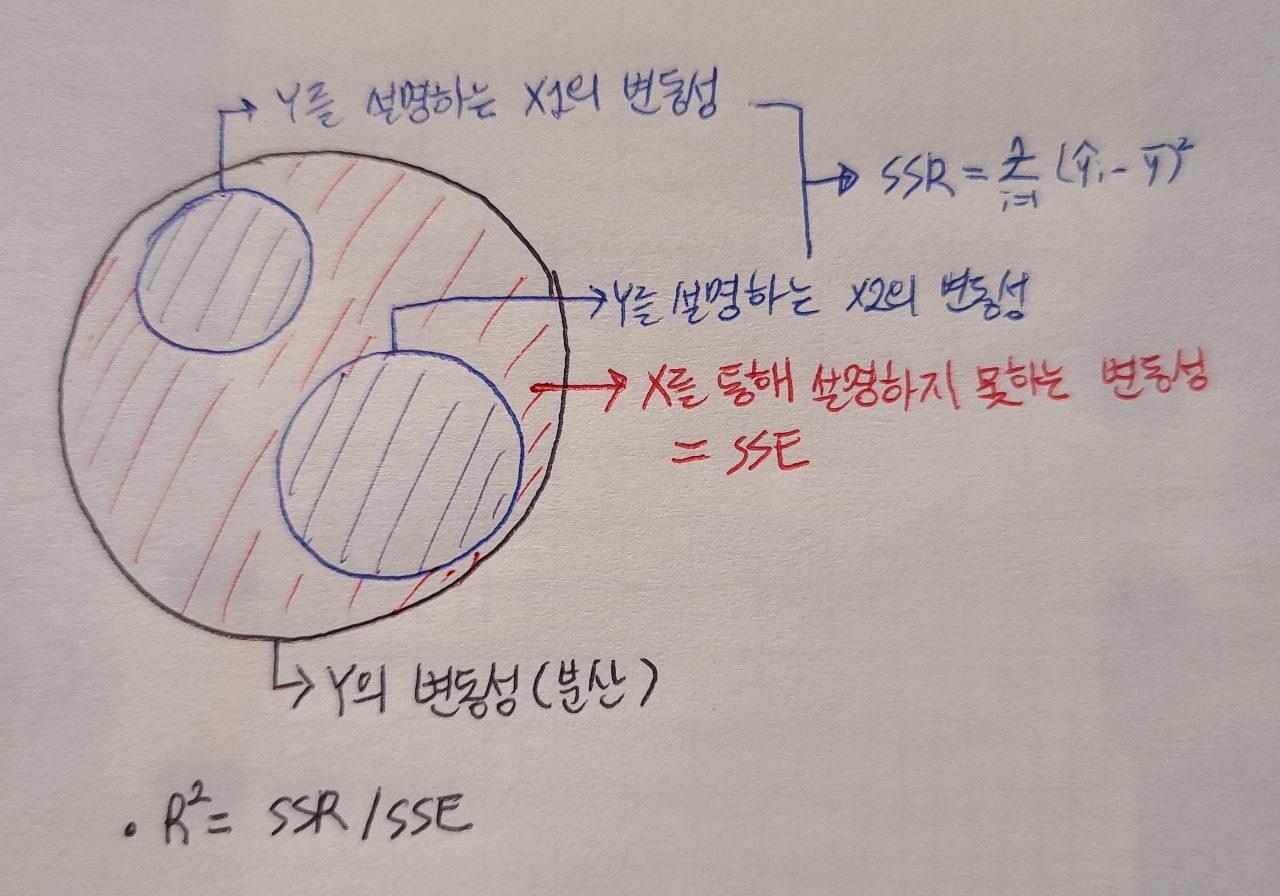 Y를 설명하는 X1의 변동성
SSR = Σ i=1 (ŷi - ȳ)²
Y를 설명하는 X2의 변동성
X를 통해 설명하지 못하는 변동성
= SSE
Y의 변동성(분산)
• R² = SSR / SSE